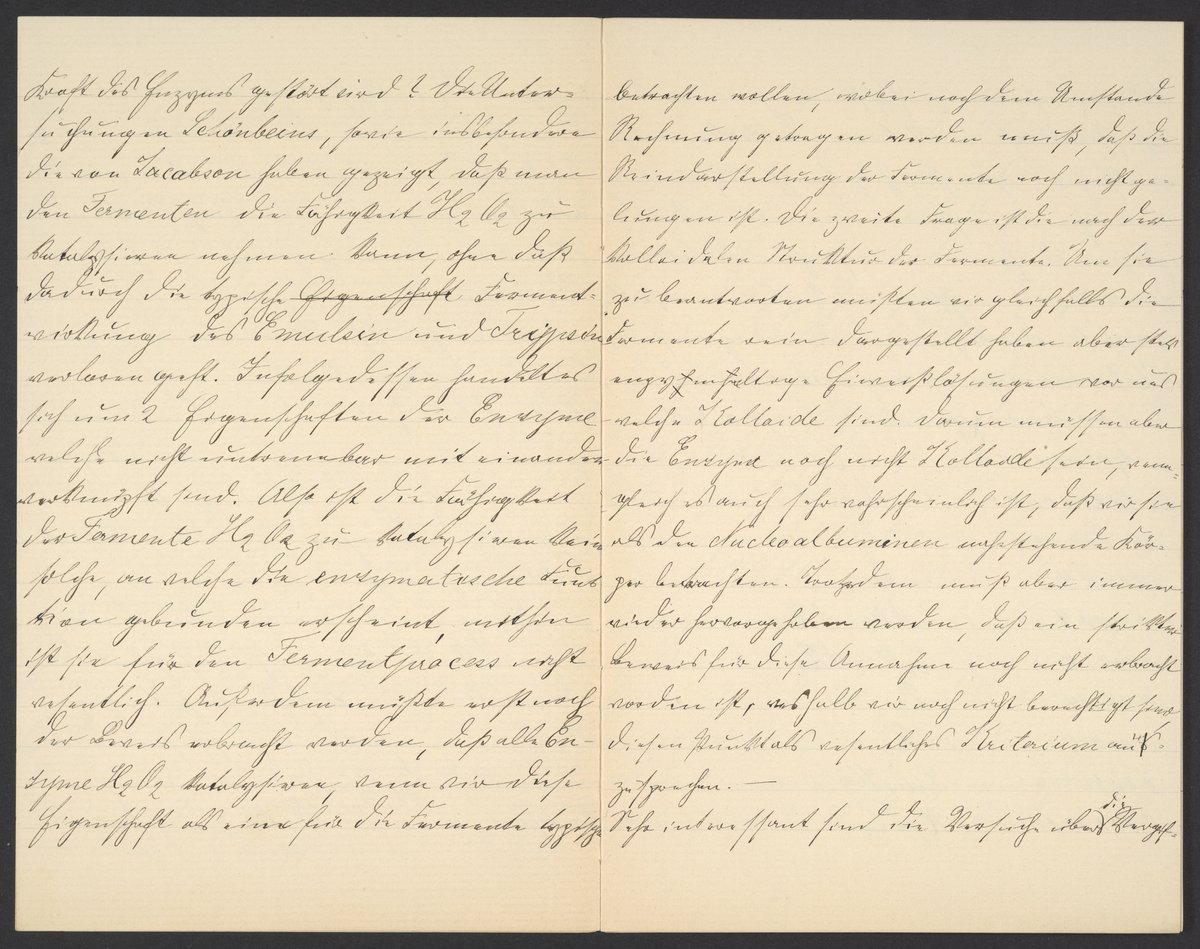 Kraft des Enzyms gestört wird? Die Unter-
suchungen Schönbeins, sowie insbesondere
die von Jacobson haben gezeigt daß man
den Fermenten die Fähigkeit H2O2 zu
katalysieren nehmen kann, ohne daß
dadurch die typische Eigenschaft Ferment-
wirkung des Emulsin und Trypsin
verloren geht. Infolgedessen handelt es
sich um 2 Eigenschaften der Enzyme
welche nicht untrennbar mit einander
verknüpft sind. Also ist die Fähigkeit
der Fermente H2O2 zu katalysieren keine
solche, an welche die enzymatische Funk
tion gebunden erscheint, mithin
ist sie für den Fermentprocess nicht
wesentlich. Außerdem müßte erst noch
der Beweis erbracht werden, daß alle En-
zyme H2O2 katalysieren, wenn wir diese
Eigenschaft als eine für die Fermente typische
betrachten wollen, wobei noch dem Umstande
Rechnung getragen werden muß, daß die
Reindarstellung der Fermente noch nicht ge-
lungen ist. Die zweite Frage ist die nach der
kolloidalen Struktur der Fermente. Um sie
zu beantworten müßten wir gleichfalls die
Fermente rein dargestellt haben aber stets
enzymhaltige Eiweißlösungen vor uns
welche Kolloide sind. Darum müssen aber
die Enzyme noch nicht Kolloide sein, wenn-
gleich es auch sehr wahrscheinlich ist, daß wir sie
als den Nucleoalbuminen nahestehende Kör-
per betrachten. Trotzdem muß aber immer
wieder hervorgehoben werden, daß ein strikter
Beweis für diese Annahme noch nicht erbracht
worden ist, weshalb wir noch nicht berechtigt sind
diesen Punkt als wesentliches Kriterium aus-
zusprechen. —
Sehr interessant sind die Versuche über die Vergif-